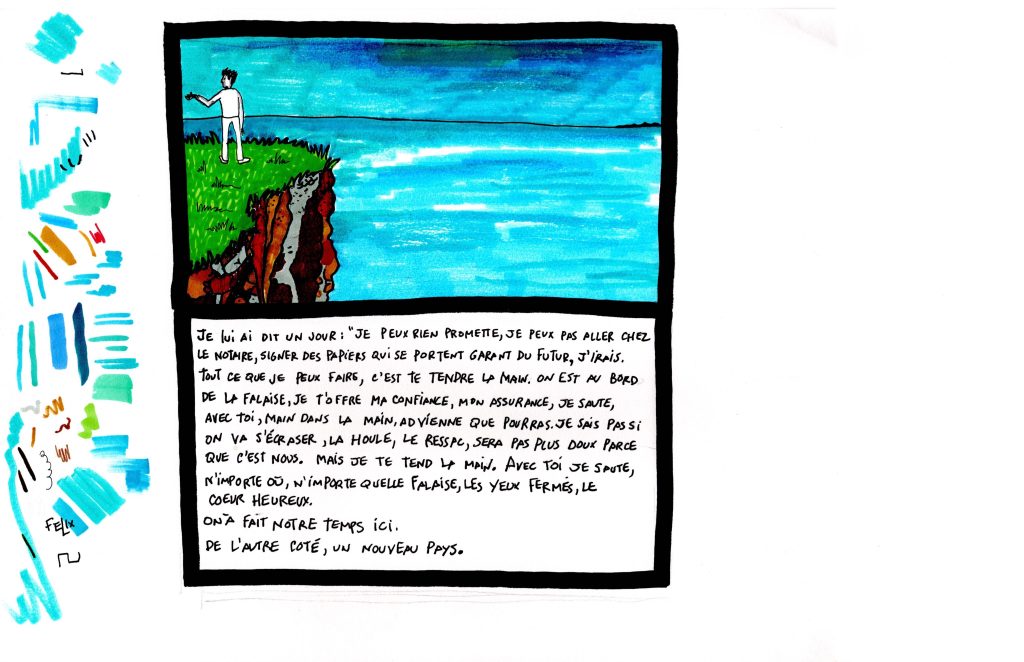 JE LUI AI DIT UN JOUR : "JE PEUX RIEN PROMETTE, JE PEUX PAS ALLER CHEZ
LE NOTAIRE, SIGNER DES PAPIERS QUI SE PORTENT GARANT DU FUTUR, J'IRAIS.
TOUT CE QUE JE PEUX FAIRE, C'EST TE TENDRE LA MAIN. ON EST AU BORD
DE LA FALAISE, JE T'OFFRE MA CONFIANCE, MON ASSURANCE, JE SAUTE,
AVEC TOI, MAIN DANS LA MAIN, ADVIENNE QUE POURRAS. JE SAIS PAS SI
ON VA S'ÉCRASER, LA HOULE, LE RESSAC, SERA PAS PLUS DOUX PARCE
QUE C'EST NOUS. MAIS JE TE TEND LA MAIN. AVEC TOI JE SAUTE,
N'IMPORTE OÙ, N'IMPORTE QUELLE FALAISE, LES YEUX FERMÉS, LE
COEUR HEUREUX.
ON A FAIT NOTRE TEMPS ICI.
DE L'AUTRE COTÉ, UN NOUVEAU PAYS.
FELIX